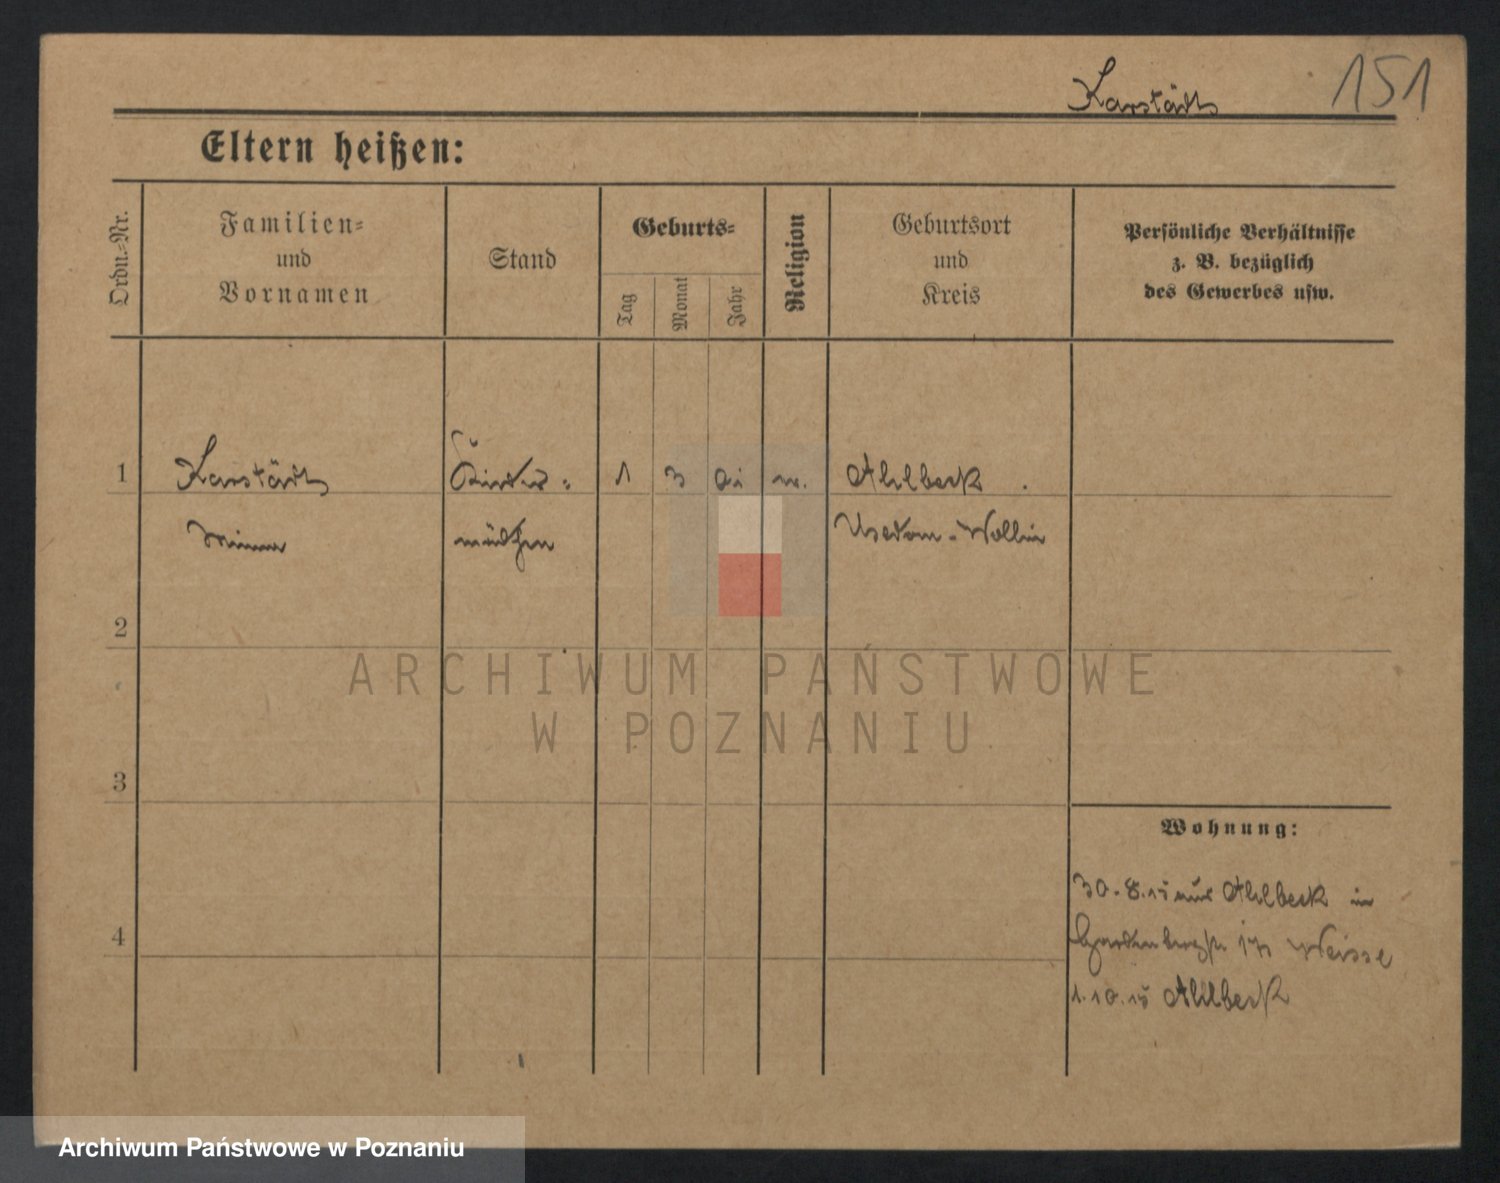 Karstädt
151
Eltern heißen:
Ordn.-Nr.
Familien-
und
Vornamen
Stand
Geburts-
Tag
Monat
Jahr
Religion
Geburtsort
und
Kreis
Persönliche Verhältnisse
z. B. bezüglich
des Gewerbes usw.
1
Karstädt
Kinder-
1
3
Ahlbeck
Minna
mädchen
Usedom-Wollin
2
ARCHIWUM PAŃSTWOWE
W POZNANIU
3
Wohnung:
30.8.15 aus Ahlbeck in
4
Weisse
1.10.15 Ahlbeck
Archiwum Państwowe w Poznaniu